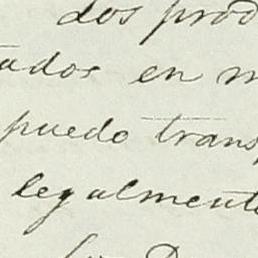 dos prod
ados en m
puedo trans
legalmente